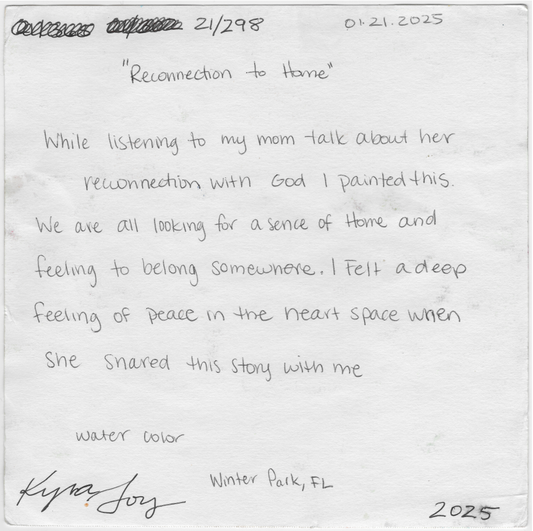 21/298 01.21.2025
"Reconnection to Home"
While listening to my mom talk about her
reconnection with God I painted this.
We are all looking for a sence of Home and
feeling to belong somewhere. I Felt a deep
feeling of peace in the heart space when
she shared this story with me
water color
Winter Park, FL
Kyra Joy
2025